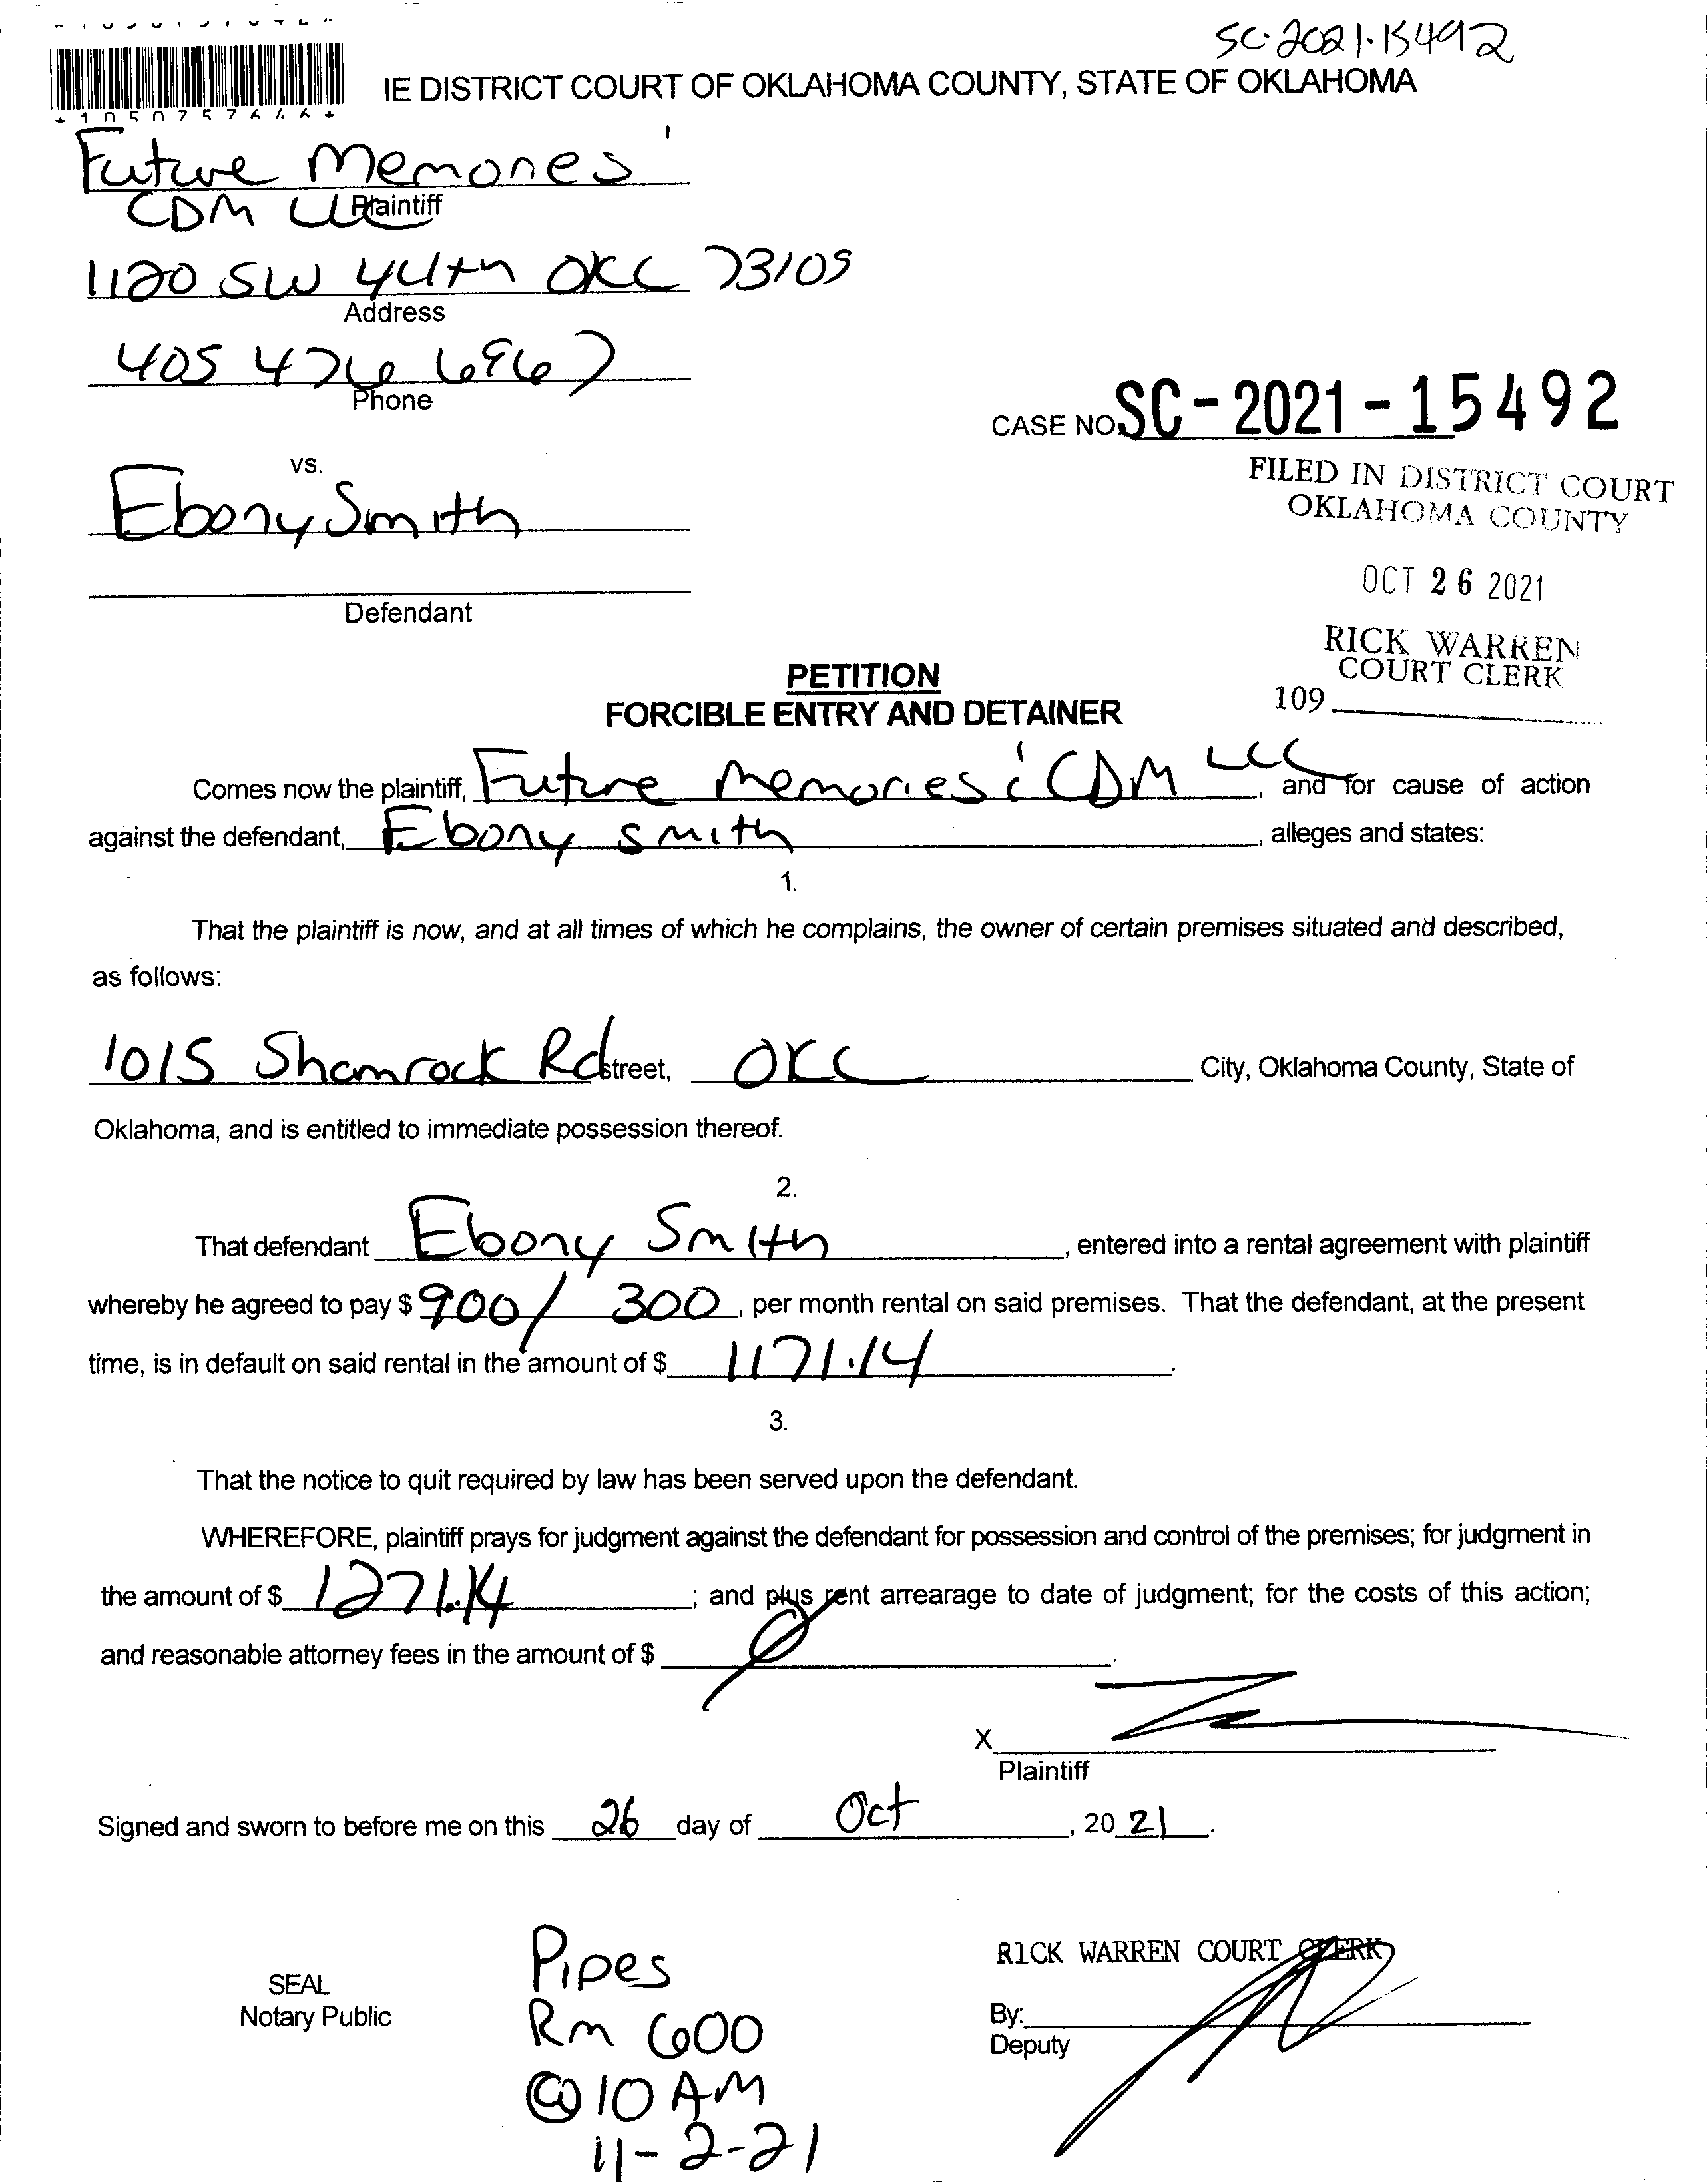 SC-2021-15492
IE DISTRICT COURT OF OKLAHOMA COUNTY, STATE OF OKLAHOMA
Future Memories
CDM LLC
Plaintiff
1120 SW 44th OKC 73109
Address
405 476 6967
Phone
CASE NO. SC-2021-15492
vs.
FILED IN DISTRICT COURT
OKLAHOMA COUNTY
Ebony Smith
OCT 26 2021
Defendant
RICK WARREN
COURT CLERK
109
PETITION
FORCIBLE ENTRY AND DETAINER
Comes now the plaintiff, Future Memories CDM LLC, and for cause of action
against the defendant, Ebony Smith, alleges and states:
1.
That the plaintiff is now, and at all times of which he complains, the owner of certain premises situated and described,
as follows:
1015 Shamrock Rd street, OKC City, Oklahoma County, State of
Oklahoma, and is entitled to immediate possession thereof.
2.
That defendant Ebony Smith, entered into a rental agreement with plaintiff
whereby he agreed to pay $ 900/ 300, per month rental on said premises. That the defendant, at the present
time, is in default on said rental in the amount of $ 1171.14.
3.
That the notice to quit required by law has been served upon the defendant.
WHEREFORE, plaintiff prays for judgment against the defendant for possession and control of the premises; for judgment in
the amount of $ 1271.14; and plus rent arrearage to date of judgment; for the costs of this action;
and reasonable attorney fees in the amount of $ Ø.
X
Plaintiff
Signed and sworn to before me on this 26 day of Oct, 20 21.
Pipes
Rm 600
@ 10 AM
11-2-21
SEAL
Notary Public
RICK WARREN COURT CLERK
By:
Deputy